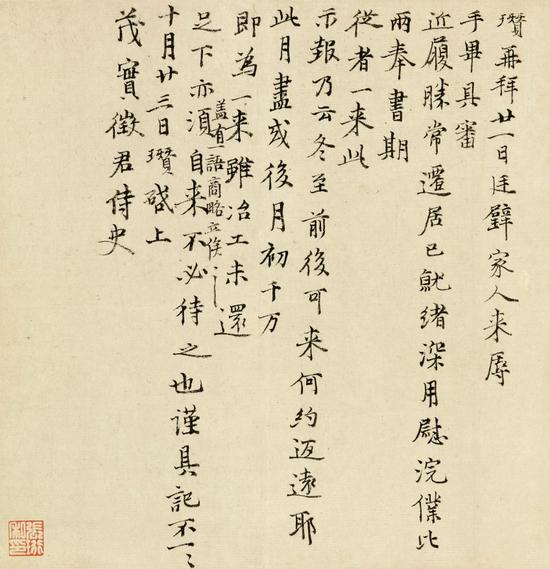 瓚再拜廿一日廷璧家人来辱
手畢具審
近履勝常遷居已就緒深用慰浣僕比
兩奉書期
從者一来此
示報乃云冬至前後可来何約迃遠耶
此月盡或後月初千万
即為一来雖冶工未還
盖有一語商略立俟
足下亦須自来不必待之也謹具記不一々
十月廿三日瓚啓上
茂實徵君侍史